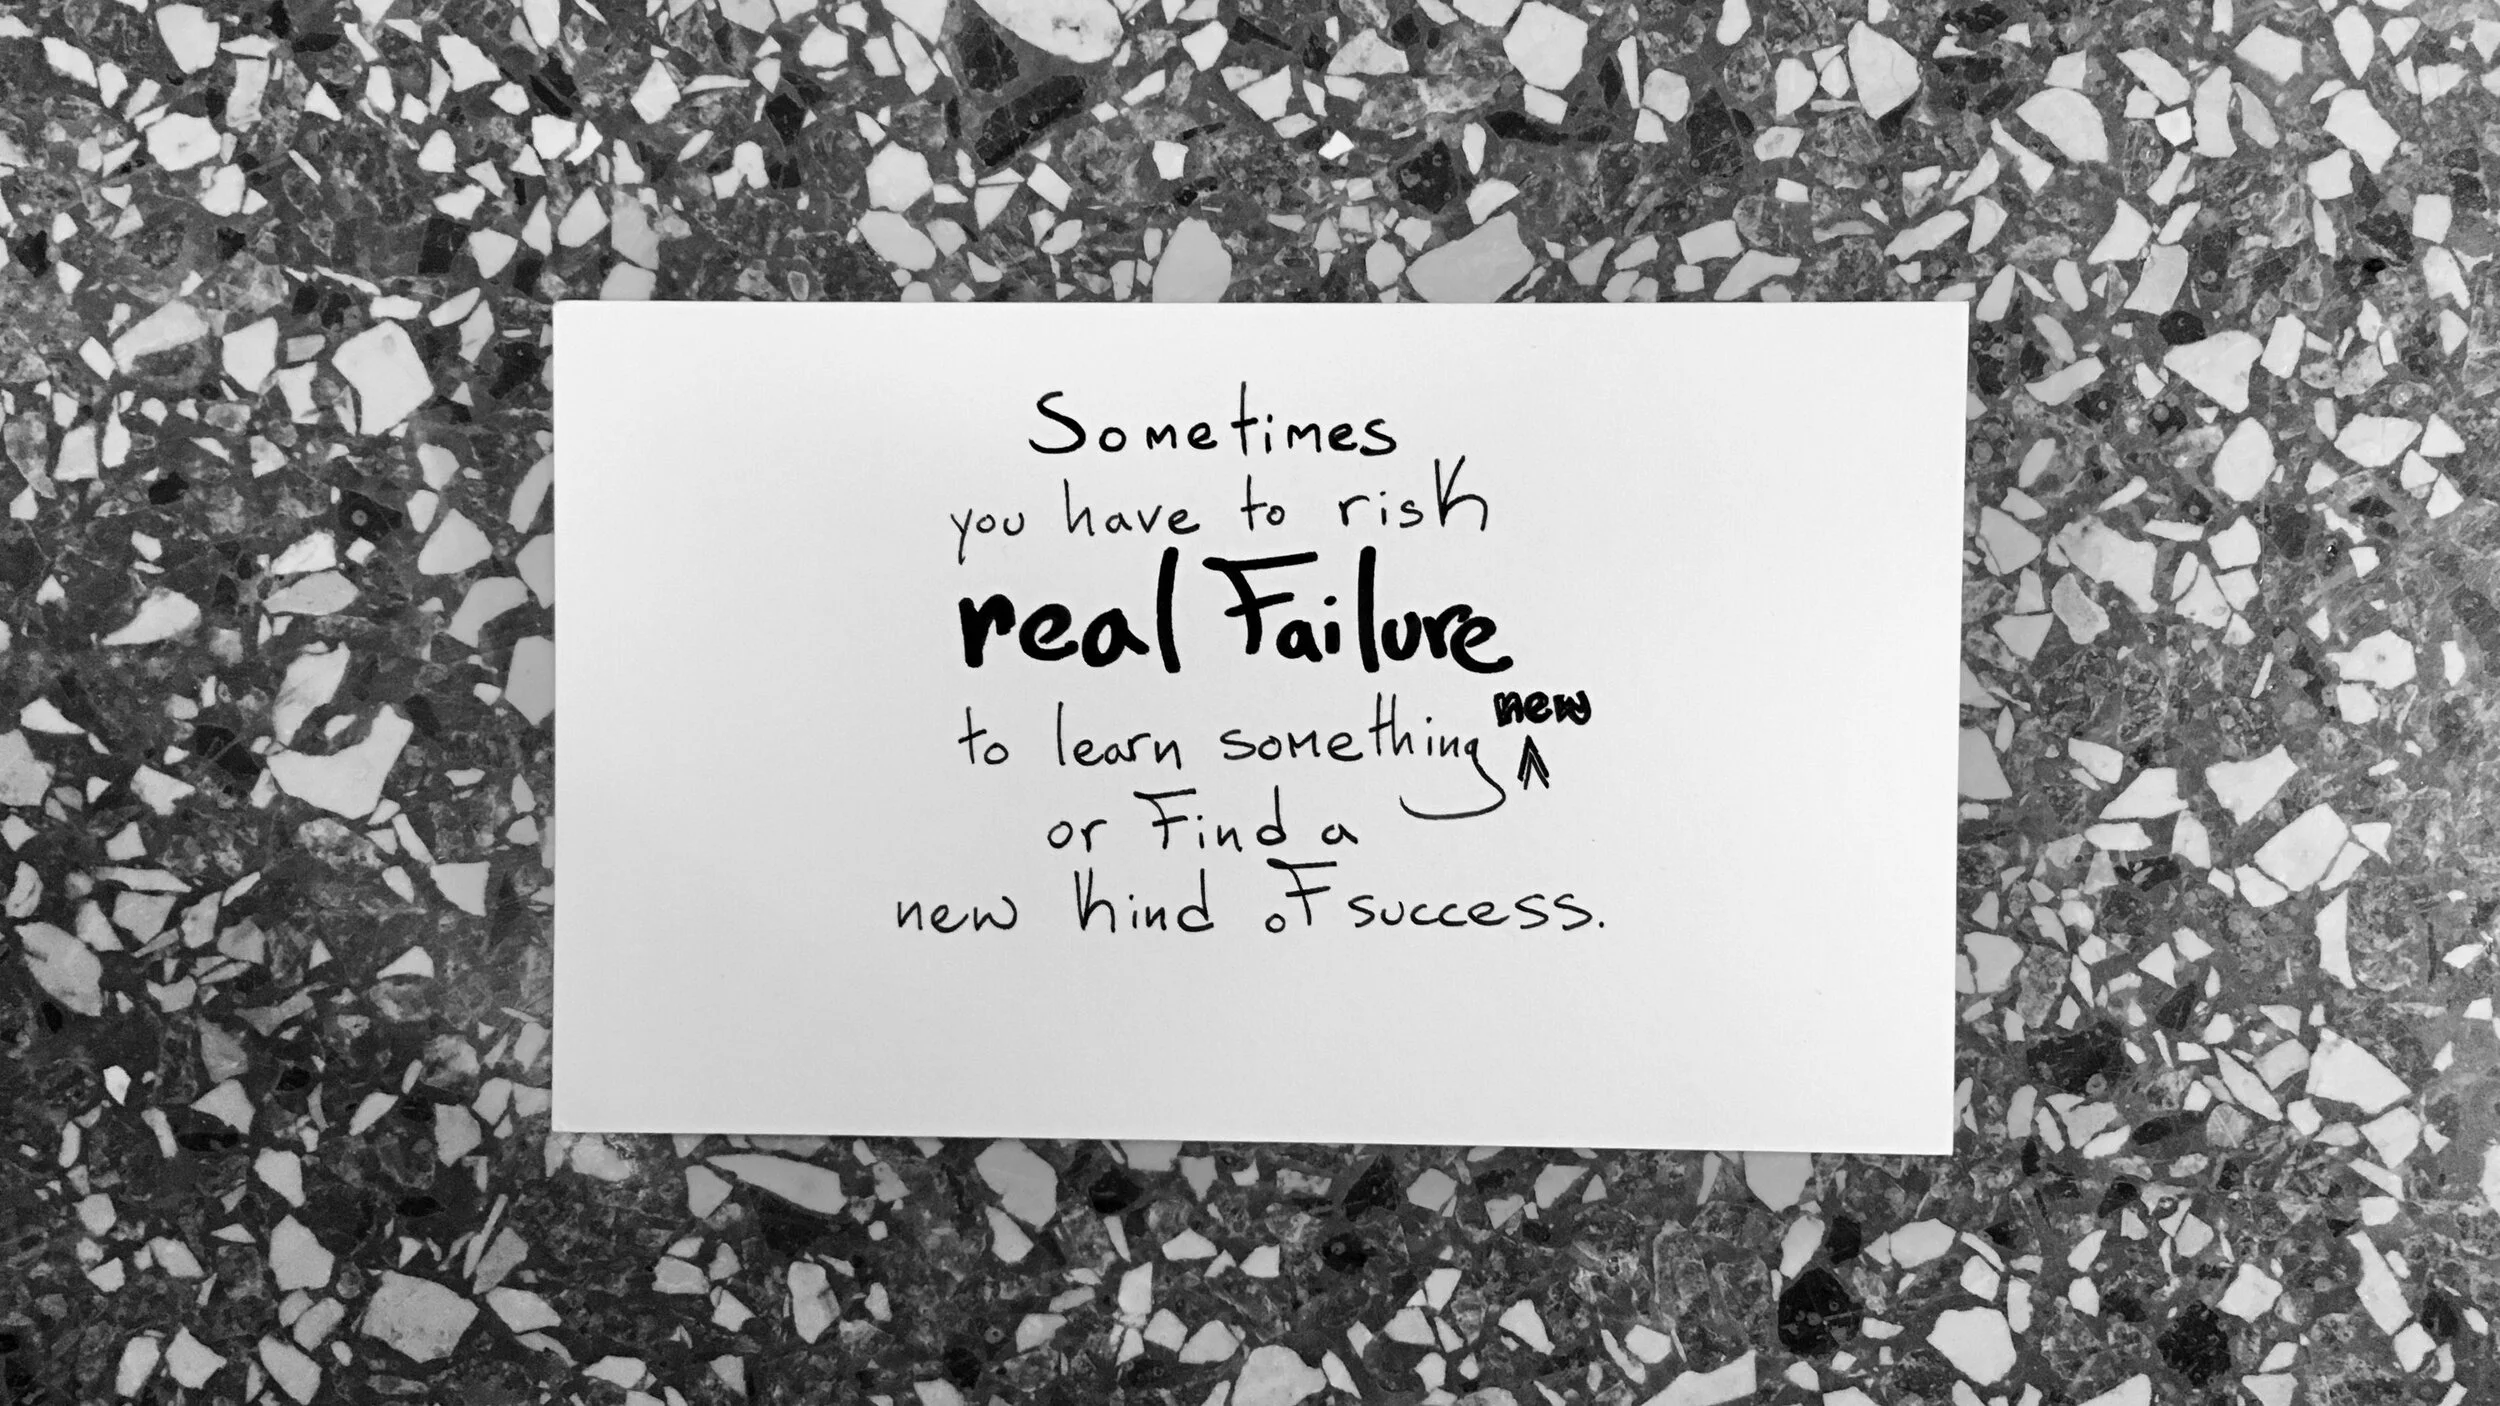 Sometimes
you have to risk
real Failure
to learn something new
or Find a
new kind of success.